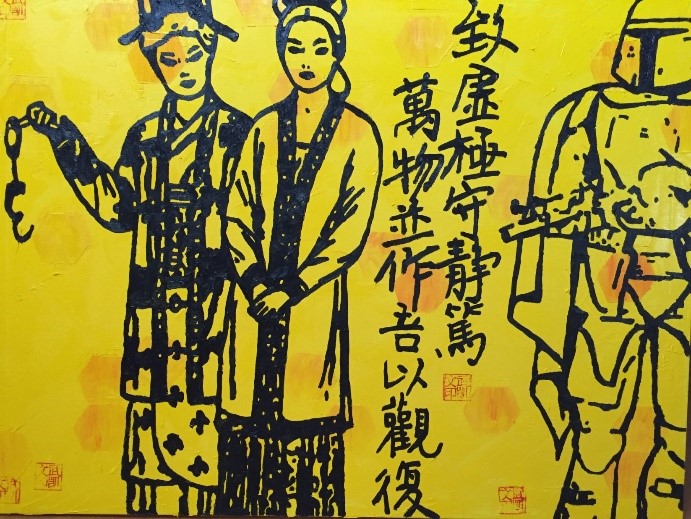 致虛極守靜篤
萬物並作吾以觀復